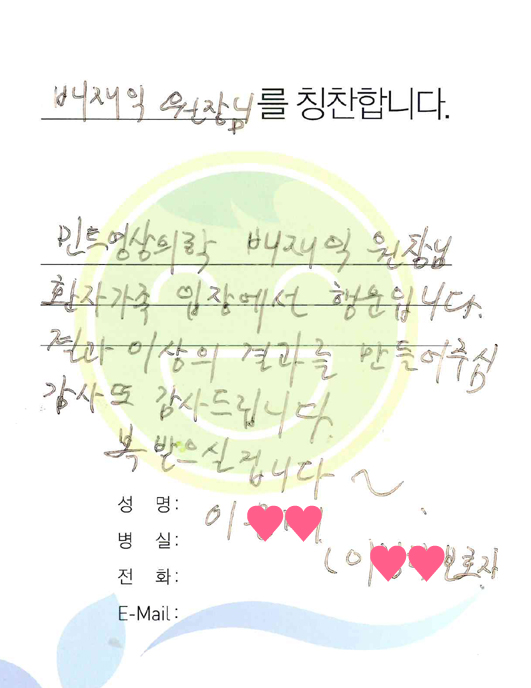 배재익 원장님를 칭찬합니다.
민트영상의학 배재익 원장님
환자가족 입장에선 행운입니다.
결과 이상의 결과를 만들어주심
감사또 감사드립니다.
복 받으실겁니다~
성 명: 이
병 실:
(이 보호자
전 화:
E-Mail: